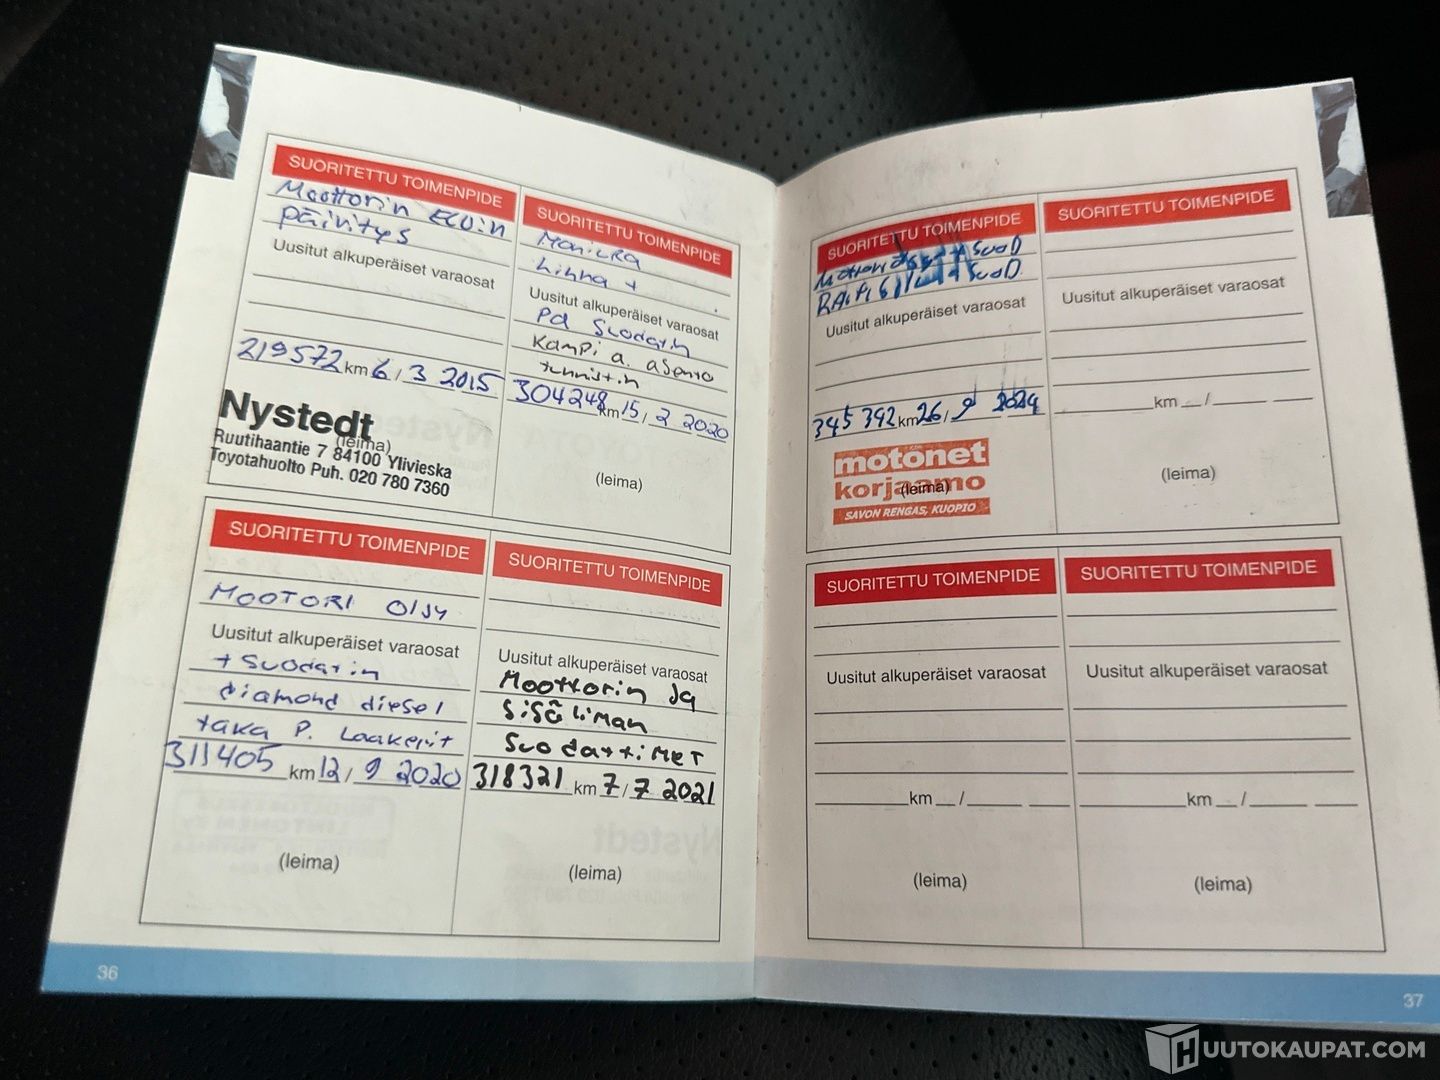 SUORITETTU TOIMENPIDE
Moottorin ECU:n
päivitys
Uusitut alkuperäiset varaosat
219572 km 6/3 2015
Nystedt
(leima)
Ruutihaantie 7 84100 Ylivieska
Toyotahuolto Puh. 020 780 7360
SUORITETTU TOIMENPIDE
hihna +
Uusitut alkuperäiset varaosat
Pa Suodatin
Kampi a. asento
tunnistin
304248 km 15/2 2020
(leima)
SUORITETTU TOIMENPIDE
MOOTORI OlJy
Uusitut alkuperäiset varaosat
+ Suodatin
diamond diesel
taka P. Laakerit
311405 km 12/9 2020
(leima)
SUORITETTU TOIMENPIDE
Uusitut alkuperäiset varaosat
Moottorin Ja
Sisäliman
Suodattimet
318321 km 7/7 2021
(leima)
36
SUORITETTU TOIMENPIDE
SuoD
SuoD
Uusitut alkuperäiset varaosat
345 392 km 26/9 2024
motonet
korjaamo
(leima)
SAVON RENGAS, KUOPIO
SUORITETTU TOIMENPIDE
Uusitut alkuperäiset varaosat
km /
(leima)
SUORITETTU TOIMENPIDE
Uusitut alkuperäiset varaosat
km /
(leima)
SUORITETTU TOIMENPIDE
Uusitut alkuperäiset varaosat
km /
(leima)
37
HUUTOKAUPAT.COM